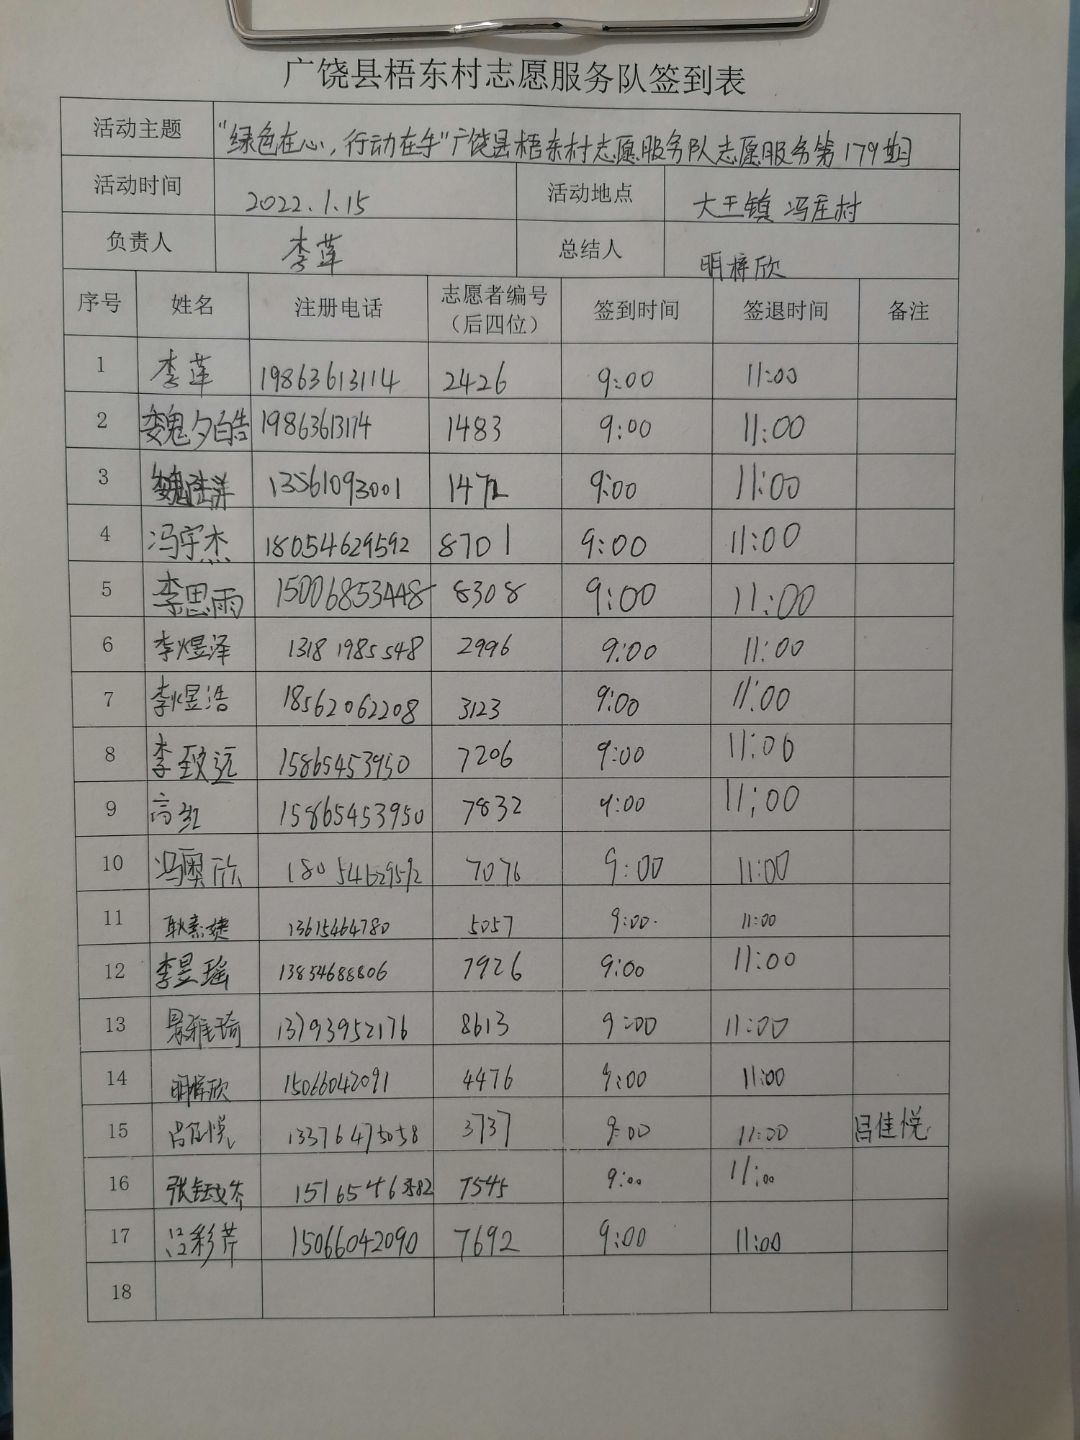 广饶县梧东村志愿服务队签到表
活动主题 "绿色在心，行动在手"广饶县梧东村志愿服务队志愿服务第179期
活动时间 2022.1.15 活动地点 大王镇 冯庄村
负责人 李莲 总结人 明梓欣
序号 姓名 注册电话 志愿者编号（后四位） 签到时间 签退时间 备注
1 李莲 19863613114 2426 9:00 11:00
2 魏夕皓 19863613114 1483 9:00 11:00
3 13561093001 9:00 11:00
4 冯宇杰 18054629592 8701 9:00 11:00
5 李思雨 15006853448 8308 9:00 11:00
6 李煜泽 13181985548 2996 9:00 11:00
7 李煜浩 18562062208 3123 9:00 11:00
8 李致远 15865453950 7206 9:00 11:00
9 高红 15865453950 7832 9:00 11:00
10 冯奥欣 18054629592 7076 9:00 11:00
11 耿素婕 13615464780 5057 9:00 11:00
12 李昱瑶 13854688806 7926 9:00 11:00
13 景雅琦 13793952176 8613 9:00 11:00
14 明梓欣 15066042091 4476 9:00 11:00
15 吕佳悦 13376475058 3737 9:00 11:00 吕佳悦
16 7545 9:00 11:00
17 彩芹 15066042090 7692 9:00 11:00
18